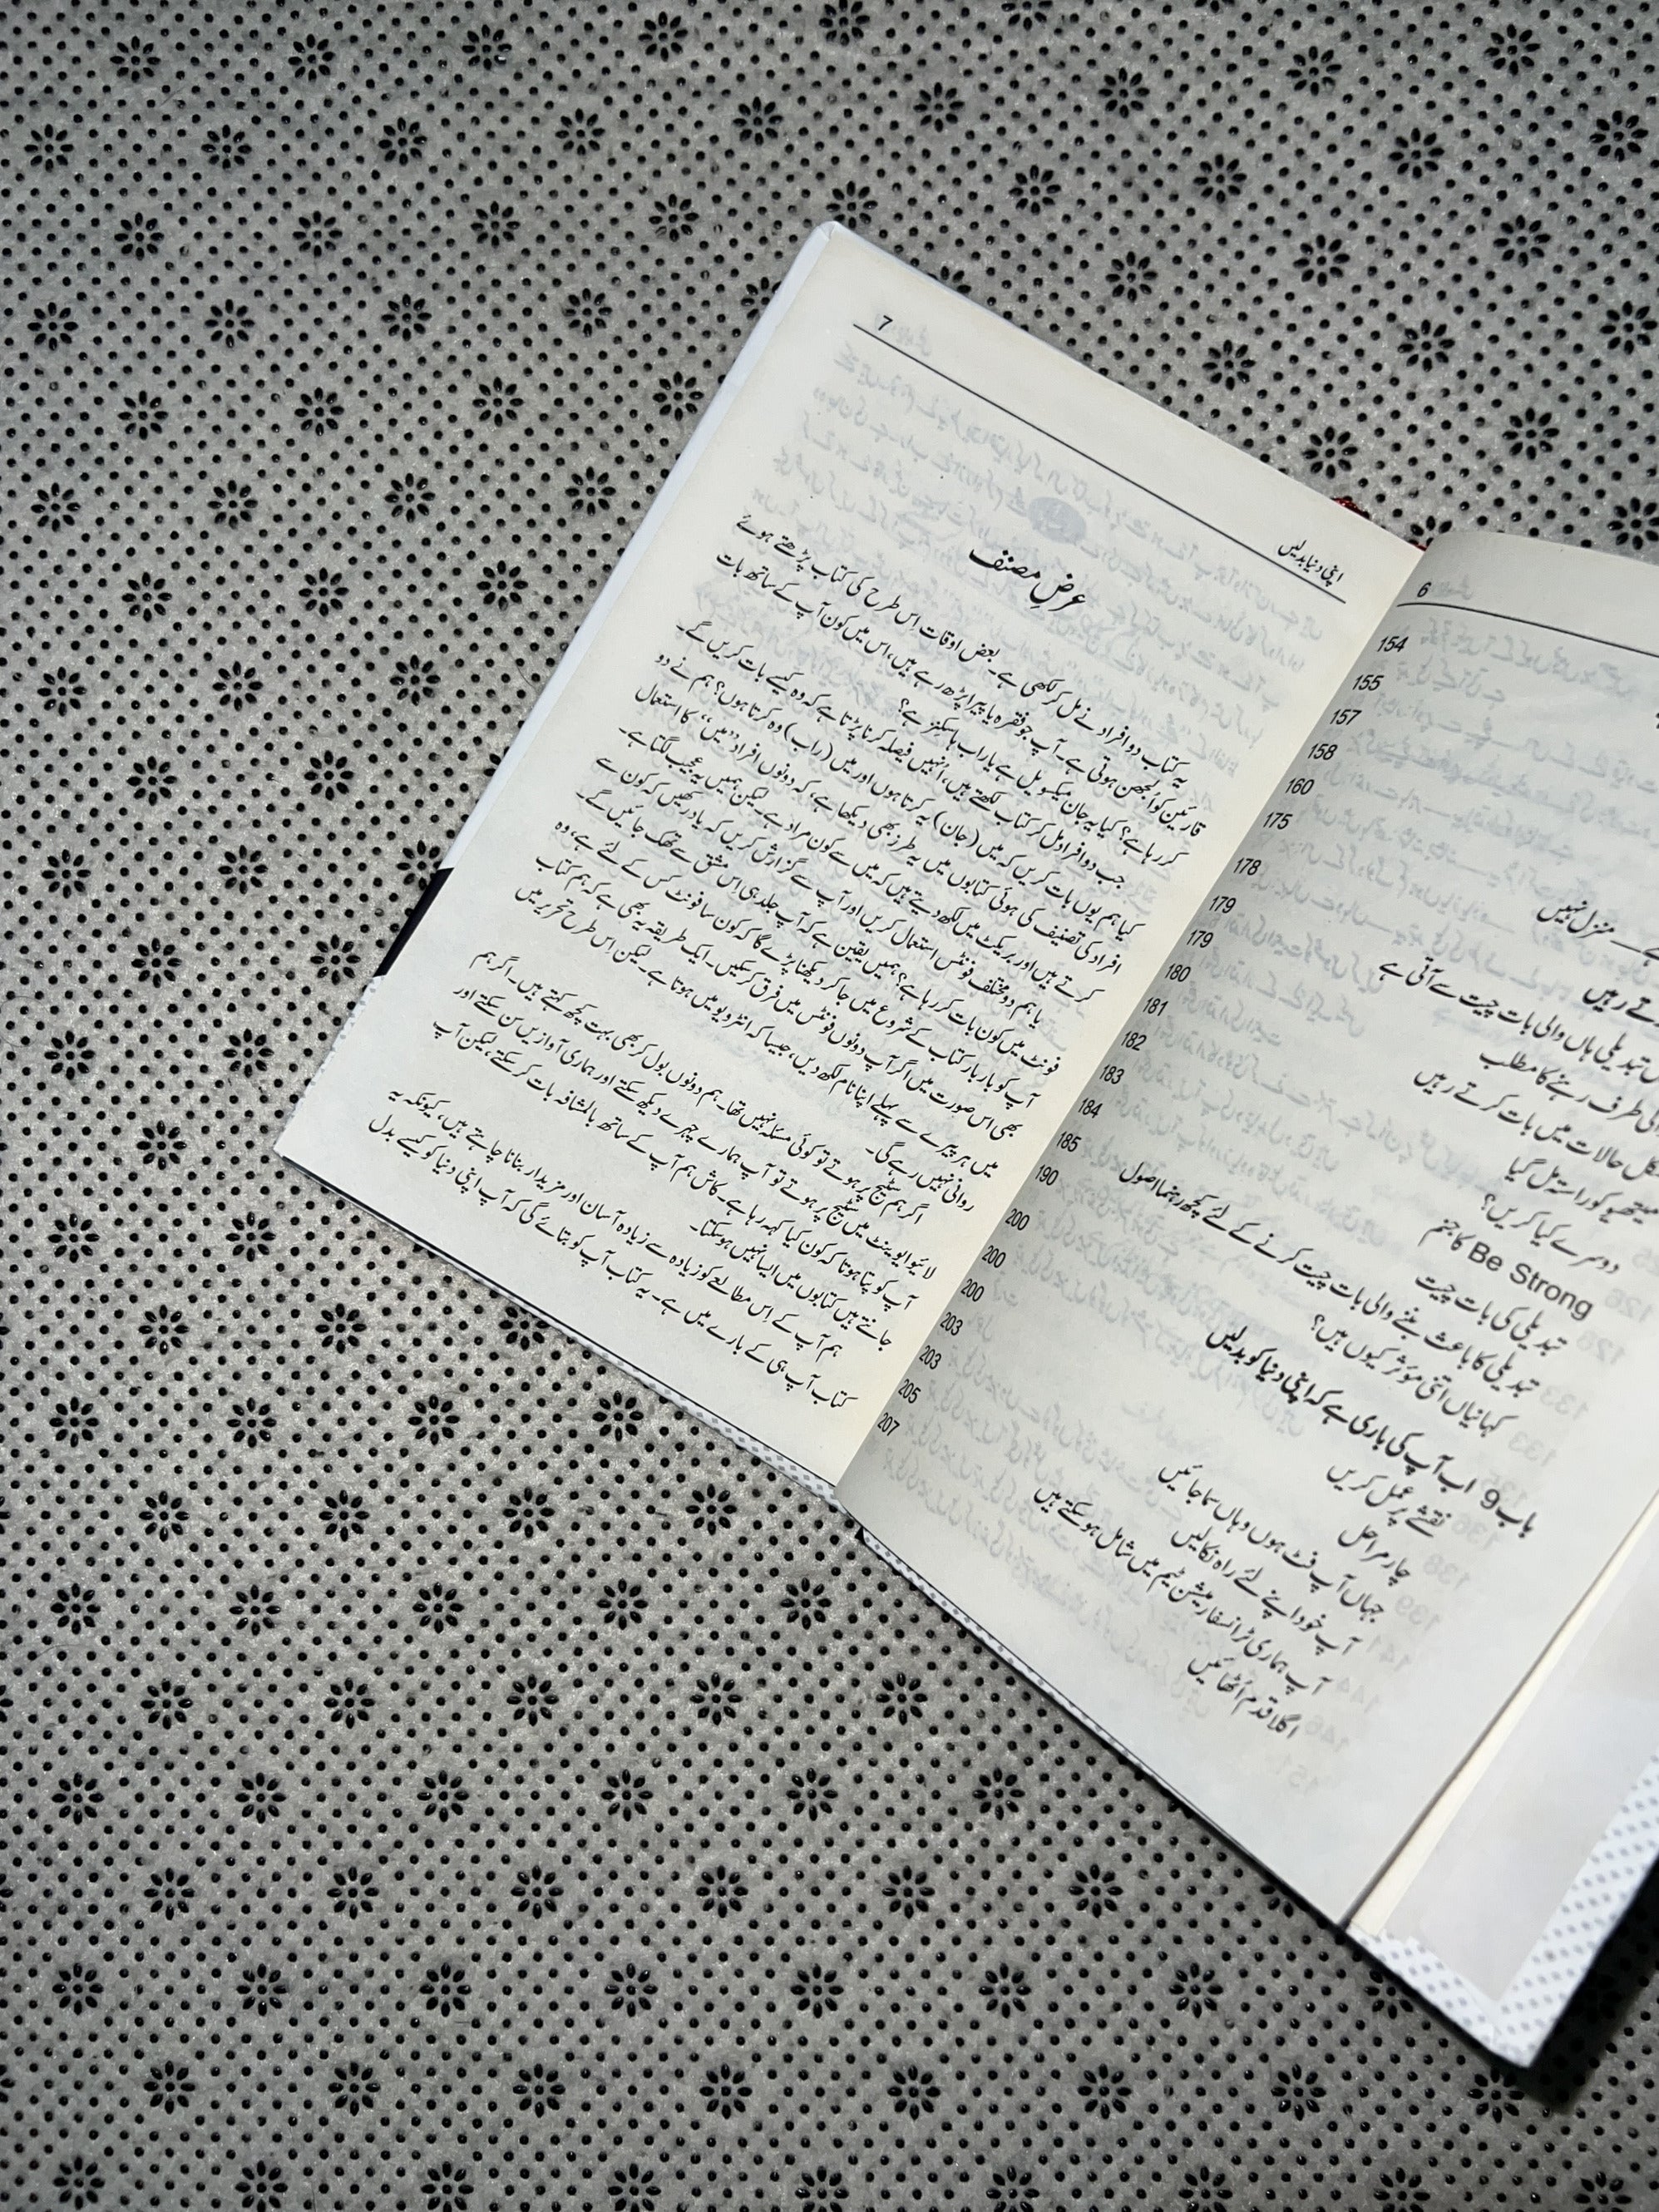 6
154
155
157
158
160
175
178
179
179
180
181
182
183
184
185
190
200
200
200
203
203
205
207
منزل نہیں
تے رہیں
تبدیلی ہاں والی بات چیت سے آتی ہے
کی طرف رہنے کا مطلب
حالات میں بات کرتے رہیں
میتھیو کو راستہ مل گیا
دوسرے کیا کریں؟
Be Strong کا جنم
تبدیلی کی بات چیت
تبدیلی کا باعث بننے والی بات چیت کرنے کے لئے کچھ رہنما اصول
کہانیاں اتنی مؤثر کیوں ہیں؟
باب 9 اب آپ کی باری ہے کہ اپنی دنیا کو بدلیں
نقشے پر عمل کریں
چار مراحل
جہاں آپ فٹ ہوں وہاں سما جائیں
آپ خود اپنے لئے راہ نکالیں
آپ ہماری ٹرانسفارمیشن ٹیم میں شامل ہو سکتے ہیں
اگلا قدم اُٹھائیں
اپنی دنیا بدلیں
7
عرضِ مصنف
یہ کتاب دو افراد نے مل کر لکھی ہے۔ بعض اوقات اِس طرح کی کتاب پڑھتے ہوئے
قارئین کو اُلجھن ہوتی ہے۔ آپ جو فقرہ یا پیرا پڑھ رہے ہیں، اس میں کون آپ کے ساتھ بات
کر رہا ہے؟ کیا یہ جان میکسویل ہے یا راب ہاسکنز ہے؟
جب دو افراد مل کر کتاب لکھتے ہیں، اُنہیں فیصلہ کرنا پڑتا ہے کہ وہ کیسے بات کریں گے۔
کیا ہم یوں بات کریں کہ میں (جان) یہ کرتا ہوں اور میں (راب) وہ کرتا ہوں؟ ہم نے دو
افراد کی تصنیف کی ہوئی کتابوں میں یہ طرز بھی دیکھا ہے، کہ دونوں افراد ”میں“ کا استعمال
کرتے ہیں اور بریکٹ میں لکھ دیتے ہیں کہ میں سے کون مراد ہے۔ لیکن ہمیں یہ عجیب لگتا ہے۔
یا ہم دو مختلف فونٹس استعمال کریں اور آپ سے گزارش کریں کہ یاد رکھیں کہ کون سے
فونٹ میں کون بات کر رہا ہے؟ ہمیں یقین ہے کہ آپ جلد ہی اِس مشق سے تھک جائیں گے۔
آپ کو بار بار کتاب کے شروع میں جا کر دیکھنا پڑے گا کہ کون سا فونٹ کس کے لئے ہے، وہ
بھی اس صورت میں اگر آپ دونوں فونٹس میں فرق کر سکیں۔ ایک طریقہ یہ بھی ہے کہ ہم کتاب
میں ہر پیرے سے پہلے اپنا نام لکھ دیں، جیسا کہ انٹرویو میں ہوتا ہے۔ لیکن اس طرح تحریر میں
روانی نہیں رہے گی۔
اگر ہم سٹیج پر ہوتے تو کوئی مسئلہ نہیں تھا۔ ہم دونوں بول کر بھی بہت کچھ کہتے ہیں۔ اگر ہم
لائیو ایونٹ میں سٹیج پر ہوتے تو آپ ہمارے چہرے دیکھ سکتے اور ہماری آوازیں سن سکتے اور
آپ کو پتا ہوتا کہ کون کیا کہہ رہا ہے۔ کاش ہم آپ کے ساتھ بالمشافہ بات کر سکتے، لیکن آپ
جانتے ہیں کتابوں میں ایسا نہیں ہو سکتا۔
ہم آپ کے اِس مطالعے کو زیادہ سے زیادہ آسان اور مزیدار بنانا چاہتے ہیں، کیونکہ یہ
کتاب آپ ہی کے بارے میں ہے۔ یہ کتاب آپ کو بتائے گی کہ آپ اپنی دنیا کو کیسے بدل